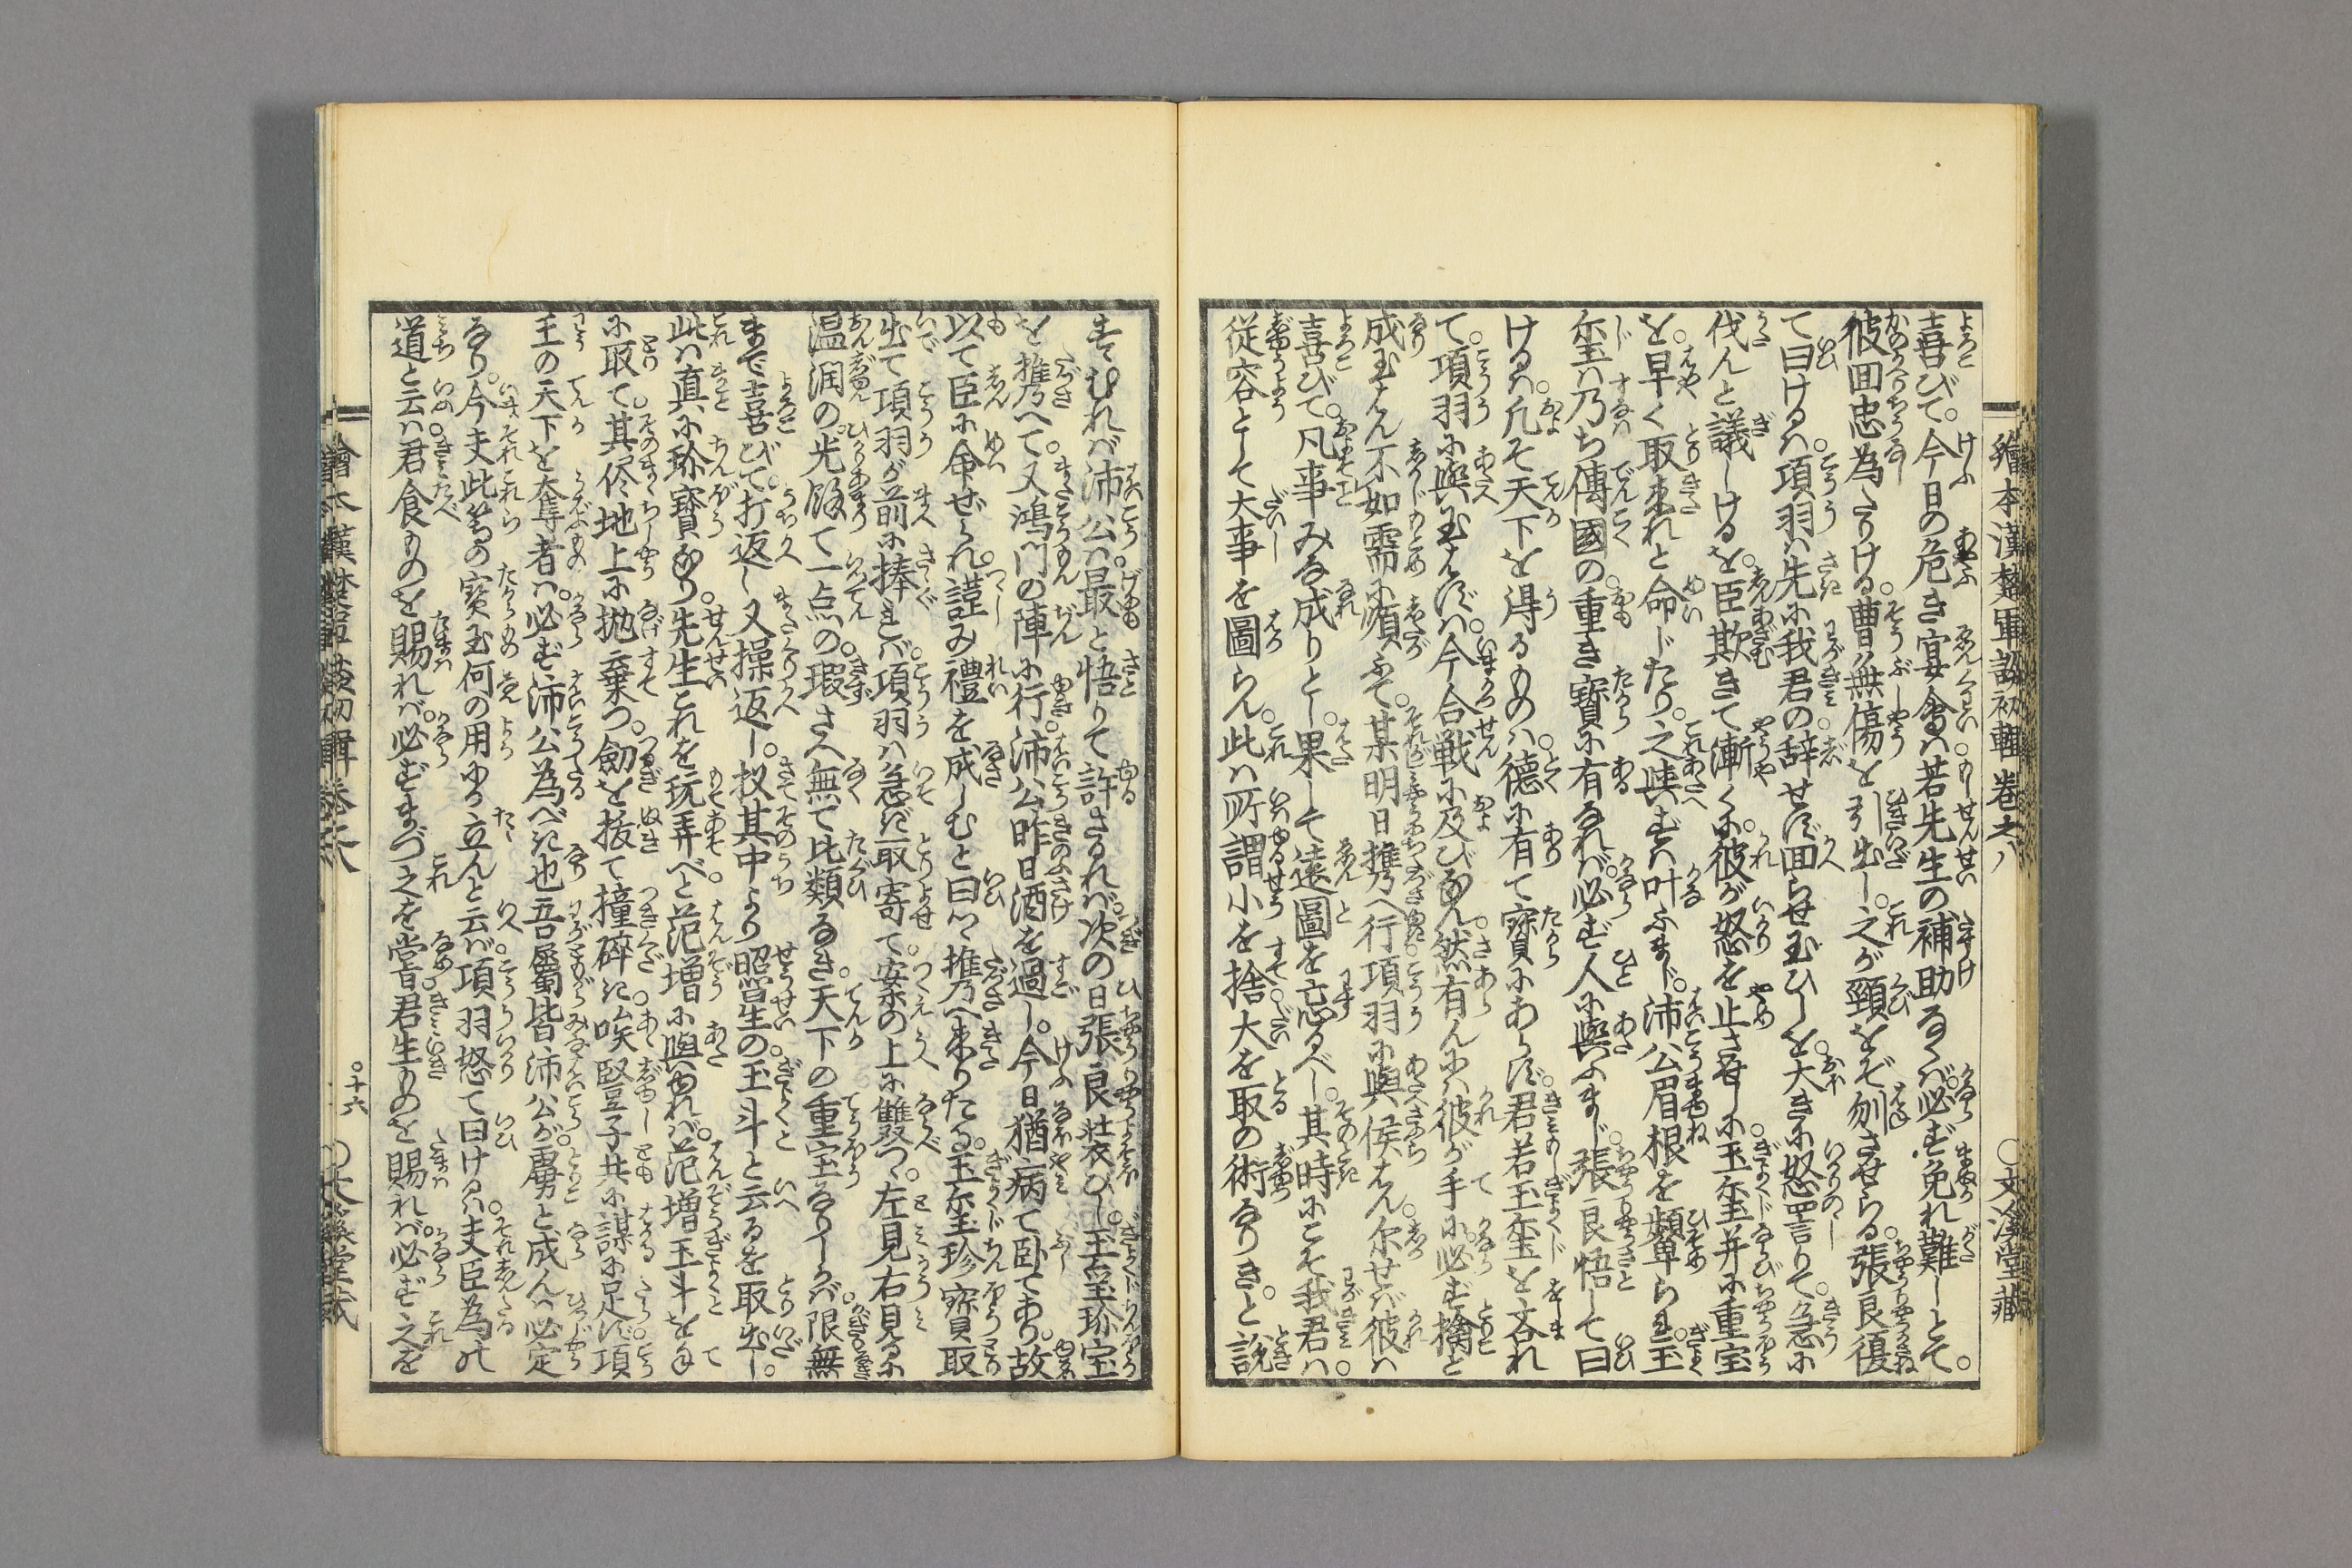 繪本漢楚軍談初輯 巻之八 ○文溪堂藏
喜びて。今日の危き宴會ハ若先生の補助なくバ。必ず免れ難しとて。
彼回忠為たりける。曹無傷を引出し。之が頸をぞ刎させらる。張良復
て曰けるハ。項羽ハ先に我君の辞せず回らせ玉ひしを。大きに怒罵りて。急に
伐んと議しけるを。臣欺きて漸くに。彼が怒を止させしに。玉玺并に重宝
を。早く取来れと命じたり。之與ずハ叶ふまじ。沛公眉根を顰られ。玉
玺ハ乃ち傳國の。重き寳に有なれバ。必ず人に與ふまじ。張良悟して曰
けるハ。凡そ天下を得るものハ。徳に有て寳にあらず。君若玉玺を吝れ
て。項羽に與玉ハずバ。今合戦に及びなん。然有んにハ彼が手に。必ず擒と
成玉はん。不如需に順ふて。某明日携へ行。項羽に與候はん。尓せバ彼ハ
喜びて。凡事みな成りとし。果して遠圖を忘るべし。其時にこそ我君ハ。
従容として大事を圖らん。此ハ所謂小を捨。大を取の術なりき。と説
すすむれバ沛公ハ。最と悟りて許されバ。次の日張良装ひし。玉玺珍宝
を携へて。又鴻門の陣に行。沛公昨日酒を過し。今日猶病て臥てあり。故
以て臣に命ぜられ。謹み禮を成しむと曰つつ携へ来りたる。玉玺珍寳取
出て項羽が前に捧れバ。項羽ハ急ぎ取寄て。案の上に雙つ。左見右見るに
温潤の。光餘て一点の。瑕さへ無て比類なき。天下の重宝なりしかバ。限無
まで喜びて。打返し又操返し。扠其中より照星の玉斗と云るを取出し。
此ハ真に珍寳なり。先生これを玩弄べと。范増に與ゆれバ。范増玉斗を手
に取て。其侭地上に抛棄つ。劔を抜て撞碎き。唉豎子共に謀に足ず。項
王の天下を奪者ハ。必ず沛公為べき也。吾属皆沛公が虜と成んハ必定
なり。今夫此等の寳玉何の用にか立んと云バ。項羽怒て曰けるハ。夫臣為の
道と云ハ。君食ものを賜れバ。必ずまづ之を嘗。君生ものを賜れバ。必ず之を
繪本漢楚軍談初輯巻之八 ○十六 ○文溪堂藏